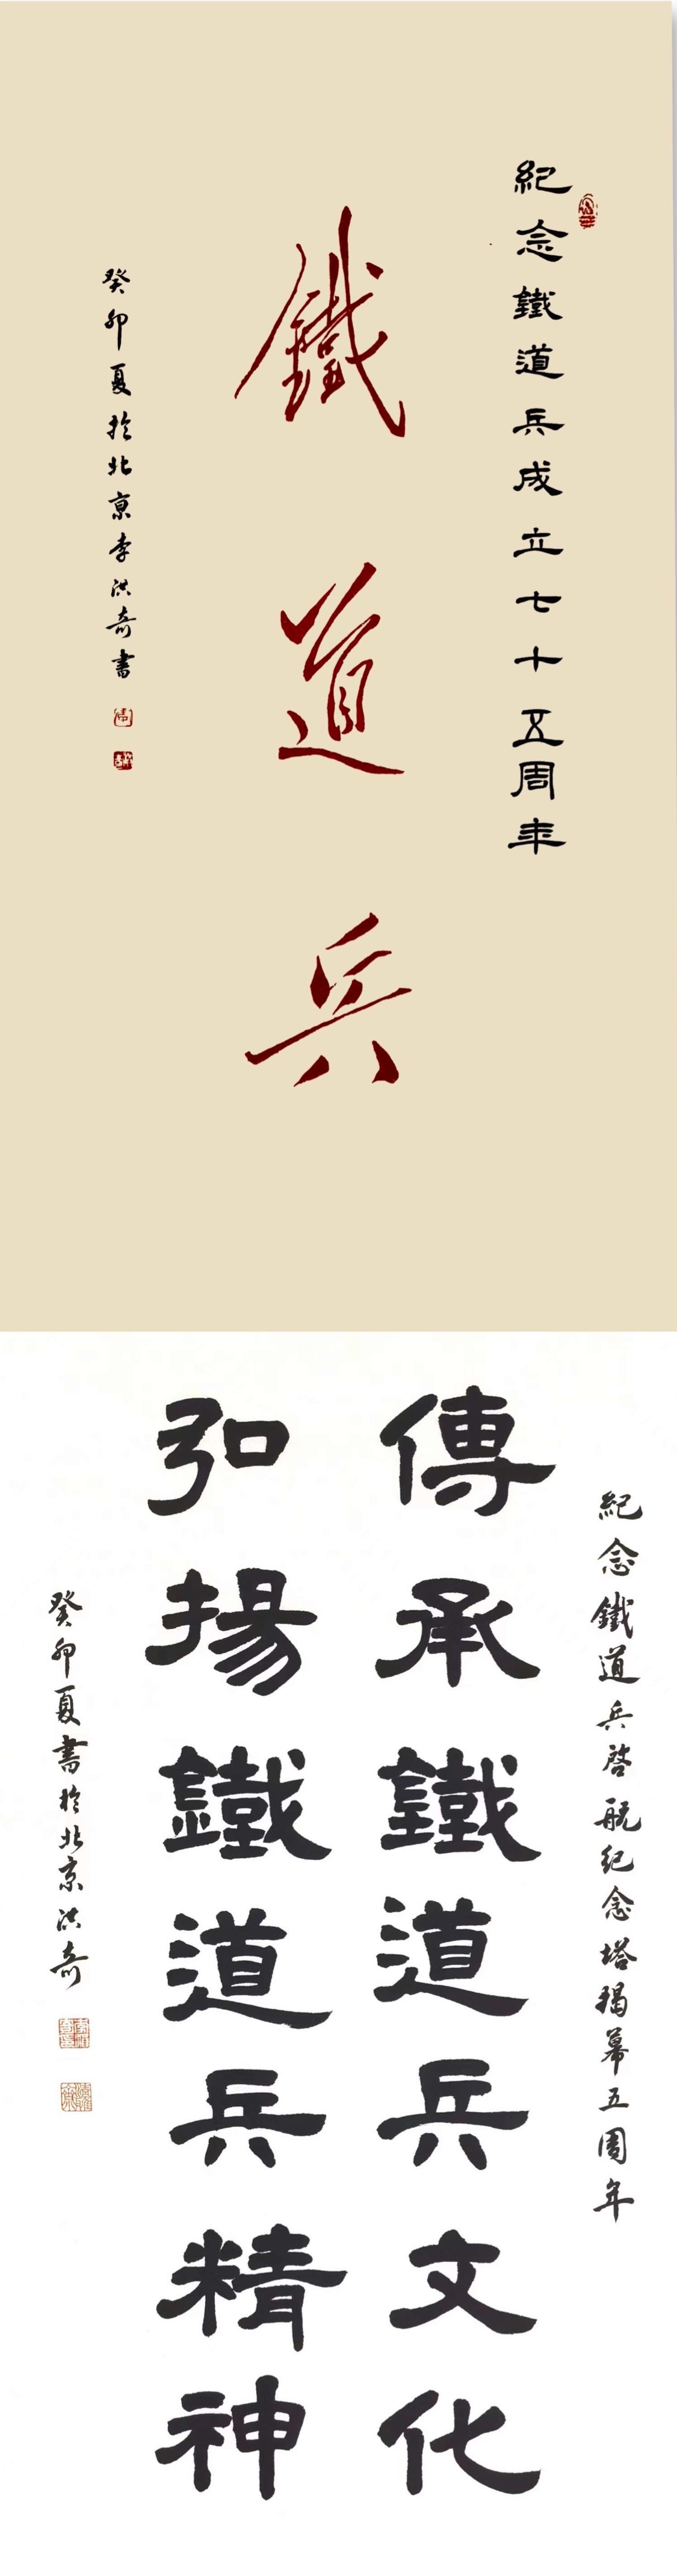 紀念鐵道兵成立七十五周年
鐵道兵
癸卯夏於北京李洪奇書
紀念鐵道兵啓航紀念塔揭幕五周年
傳承鐵道兵文化
弘揚鐵道兵精神
癸卯夏書於北京洪奇